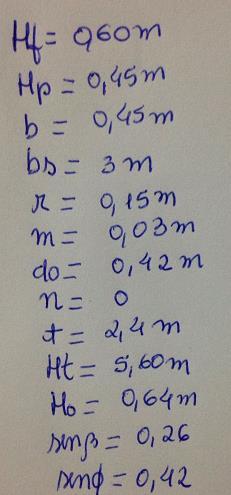 Hf = 0,60m
Hp = 0,45m
b = 0,45m
bs = 3 m
r = 0,15m
m = 0,03m
do = 0,42m
n = 0
t = 2,4m
Ht = 5,60m
Ho = 0,64m
senβ = 0,26
senϕ = 0,42